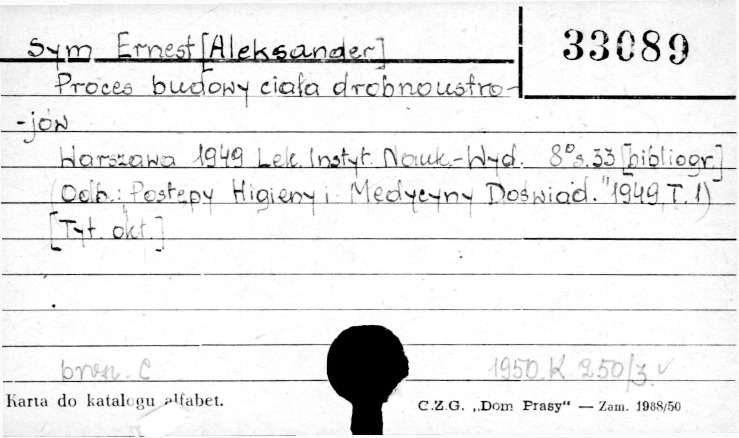 Sym Ernest [Aleksander]
33089
Proces budowy ciała drobnoustro-
-jów
Warszawa 1949 Lek. Instyt. Nauk.-Wyd. 8° s. 33 [bibliogr.]
(Odb.: "Postępy Higieny i Medycyny Doświad." 1949, T. 1)
[Tyt. okł.]
brosz. C
1950. K 250/3. v
Karta do katalogu alfabet.
C.Z.G. „Dom Prasy“ — Zam. 1988/50